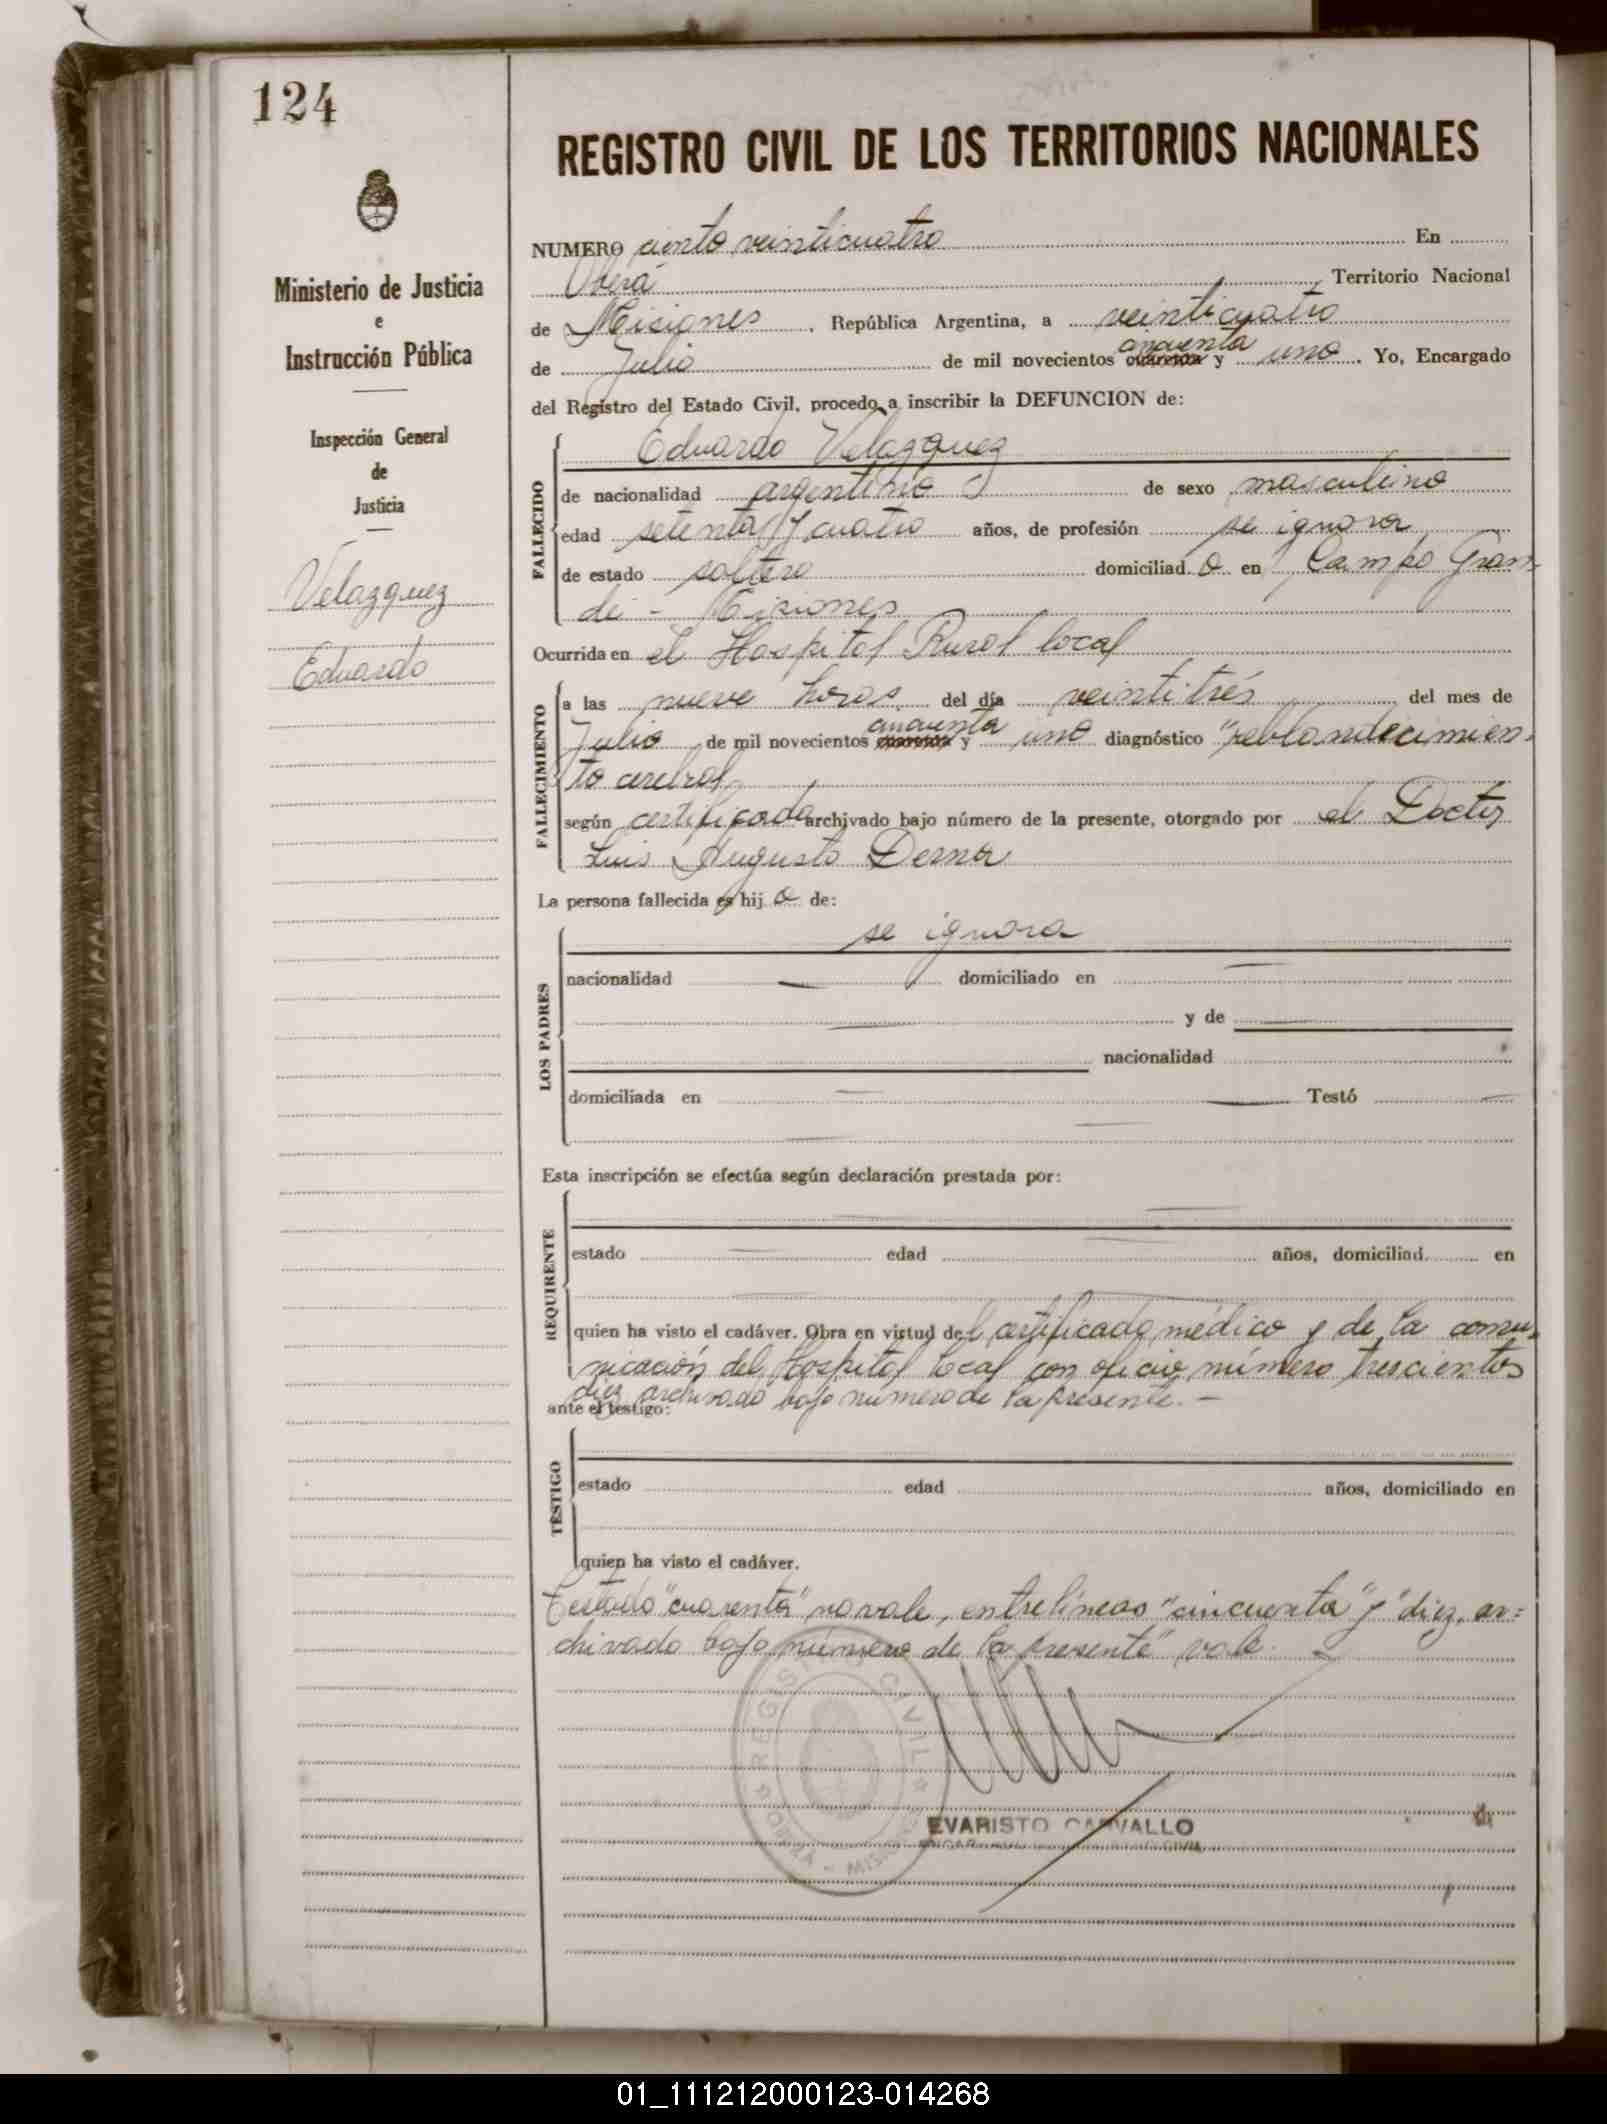 124
Ministerio de Justicia
e
Instrucción Pública
Inspección General
de
Justicia
Velazquez
Eduardo
REGISTRO CIVIL DE LOS TERRITORIOS NACIONALES
NUMERO ciento veinticuatro En
Oberá Territorio Nacional
de Misiones, República Argentina, a veinticuatro
cincuenta
de Julio de mil novecientos cuarenta y uno. Yo, Encargado
del Registro del Estado Civil, procedo a inscribir la DEFUNCION de:
FALLECIDO
Eduardo Velazquez
de nacionalidad argentino de sexo masculino
edad setenta y cuatro años, de profesión se ignora
de estado soltero domiciliad o en Campo Gran-
de - Misiones
Ocurrida en el Hospital Rural local
FALLECIMIENTO
a las nueve horas del día veintitrés del mes de
cincuenta
Julio de mil novecientos cuarenta y uno diagnóstico "reblandecimien-
to cerebral
según certificado archivado bajo número de la presente, otorgado por el Doctor
Luis Augusto Derna
La persona fallecida es hij o de:
LOS PADRES
se ignora
nacionalidad — domiciliado en —
— y de —
nacionalidad
domiciliada en — Testó —
Esta inscripción se efectúa según declaración prestada por:
REQUIRENTE
estado — edad — años, domiciliad en
quien ha visto el cadáver. Obra en virtud del certificado médico y de la comu-
nicación del Hospital local con oficio número trescientos
diez archivado bajo número de la presente. -
ante el testigo:
TESTIGO
estado edad años, domiciliado en
quien ha visto el cadáver.
Testado "cuarenta" no vale, entrelíneas "cincuenta" y "diez, ar=
chivado bajo número de la presente" vale.
REGISTRO CIVIL
OBERA - MISIONES
EVARISTO CARVALLO
01_111212000123-014268